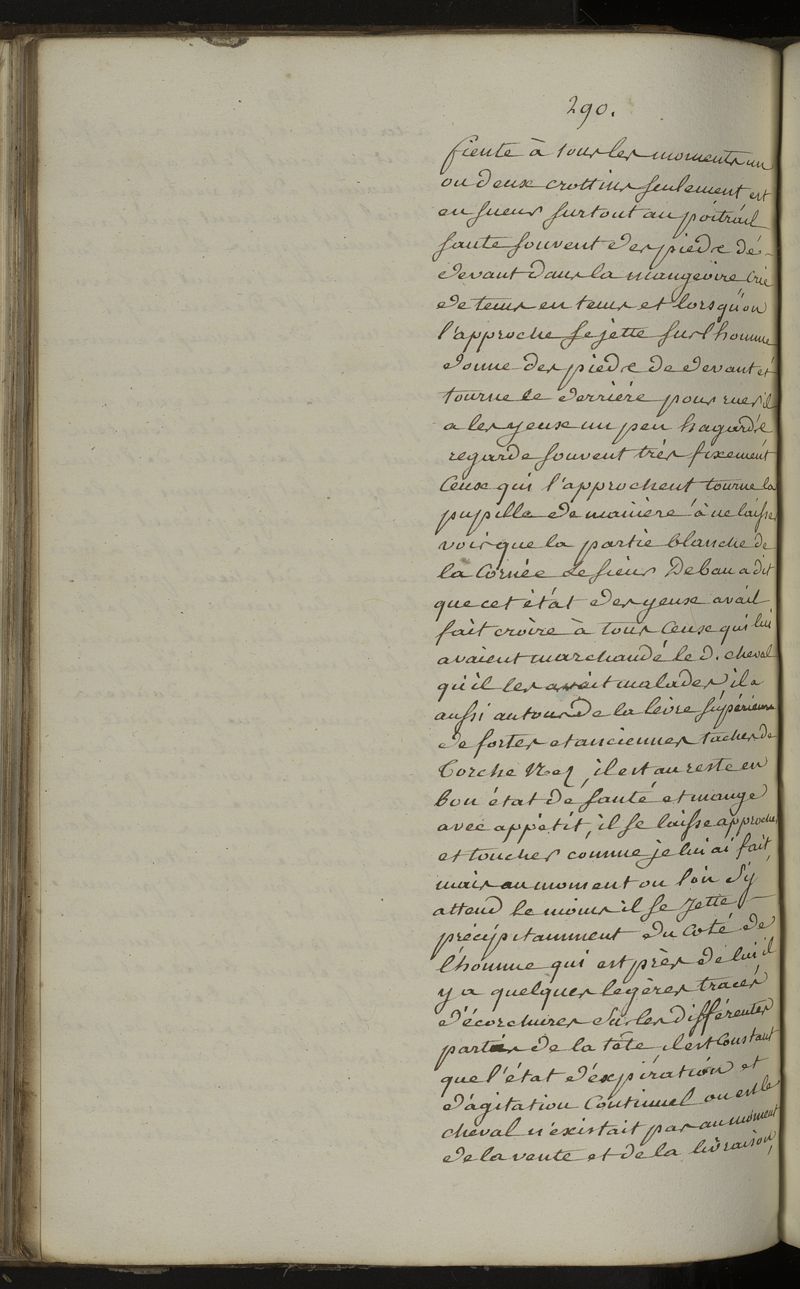 290.
fiente à tous les moments un
ou deux crottins seulement est
en sueur surtout au poitrail
saute souvent des pieds dé-
devant dans la mangeoire crie
de tems en tems et lorsqu'on
l'approche se jette sur l'homme
donne des pieds de devant et
tourne le derrière pour ruer il
a les yeux un peu hagards
regarde souvent très fixement
ceux qui l'approchent tourne la
pupille de manière à ne laisser
voir que la partie blanche de
la Cornée le sieur Debau a dit
que cet état des yeux avait
fait croire à tous ceux qui lui
avaient marchandé le d. cheval
qu'il les avait malades il a
aussi autour de la lèvre supérieure
de fortes et anciennes taches de
Torche Nez, il est au reste en
bon état de santé et mange
avec appétit, il se laisse approcher
et toucher comme je lui ai fait
mais au moment ou l'on s'y
attend le moins il se jette
précipitamment du coté de
l'homme qui est près de lui il
y a quelques legères traces
d'écorchures sur les différentes
parties de la tête il est Constant
que l'état d'expiration et
d'agitation Continuel ou est le
cheval n'existait pas au moment
de la vente et de la livraison,